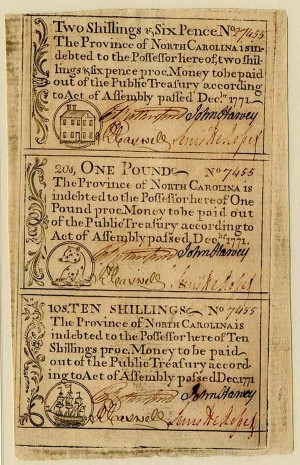 Two Shillings & Six Pence. No 7455
The Province of NORTH CAROLINA is in-
debted to the Possessor hereof, two shil-
lings & six pence proc. Money to be paid
out of the Public Treasury according
to Act of Assembly passed Dec. 1771
Rutherfurd John Harvey
R Caswell Lewis De Rosset
20s, ONE POUND No 7455
The Province of NORTH CAROLINA is
indebted to the Possessor here of One
Pound proc. Money to be paid out
of the Public Treasury according to
Act of Assembly passed, Dec. 1771.
Rutherfurd John Harvey
R Caswell Lewis De Rosset
10s, TEN SHILLINGS No 7455
The Province of NORTH CAROLINA is
indebted to the Possessor here of Ten
Shillings proc. Money to be paid
out of the Public Treasury accord-
ing to Act of Assembly passed Dec. 1771
Rutherfurd John Harvey
R Caswell Lewis De Rosset